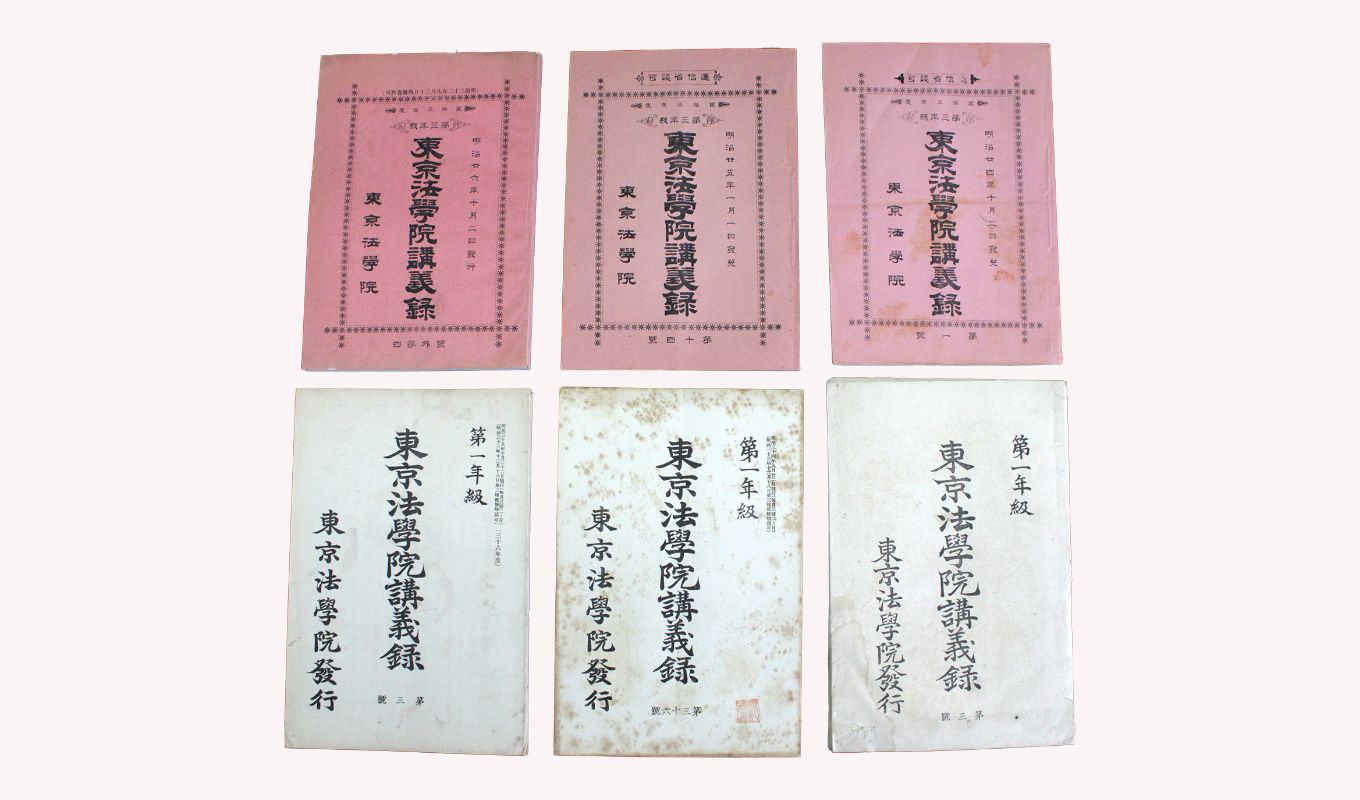 （明治二十二年九月三十日內務省許可）
貳拾五年度
第三年級
明治廿六年十月二日發行
東京法學院講義録
東京法學院
號外第四
遞信省認可
貳拾五年度
第三年級
明治廿五年一月一日發兌
東京法學院講義録
東京法學院
第十四號
遞信省認可
貳拾五年度
第三年級
明治廿四年十月二日發兌
東京法學院講義録
東京法學院
第一號
（三十六年度）
第一年級
東京法學院講義録
東京法學院發行
第三號
第一年級
東京法學院講義録
東京法學院發行
第三十六號
第一年級
東京法學院講義録
東京法學院發行
第三號